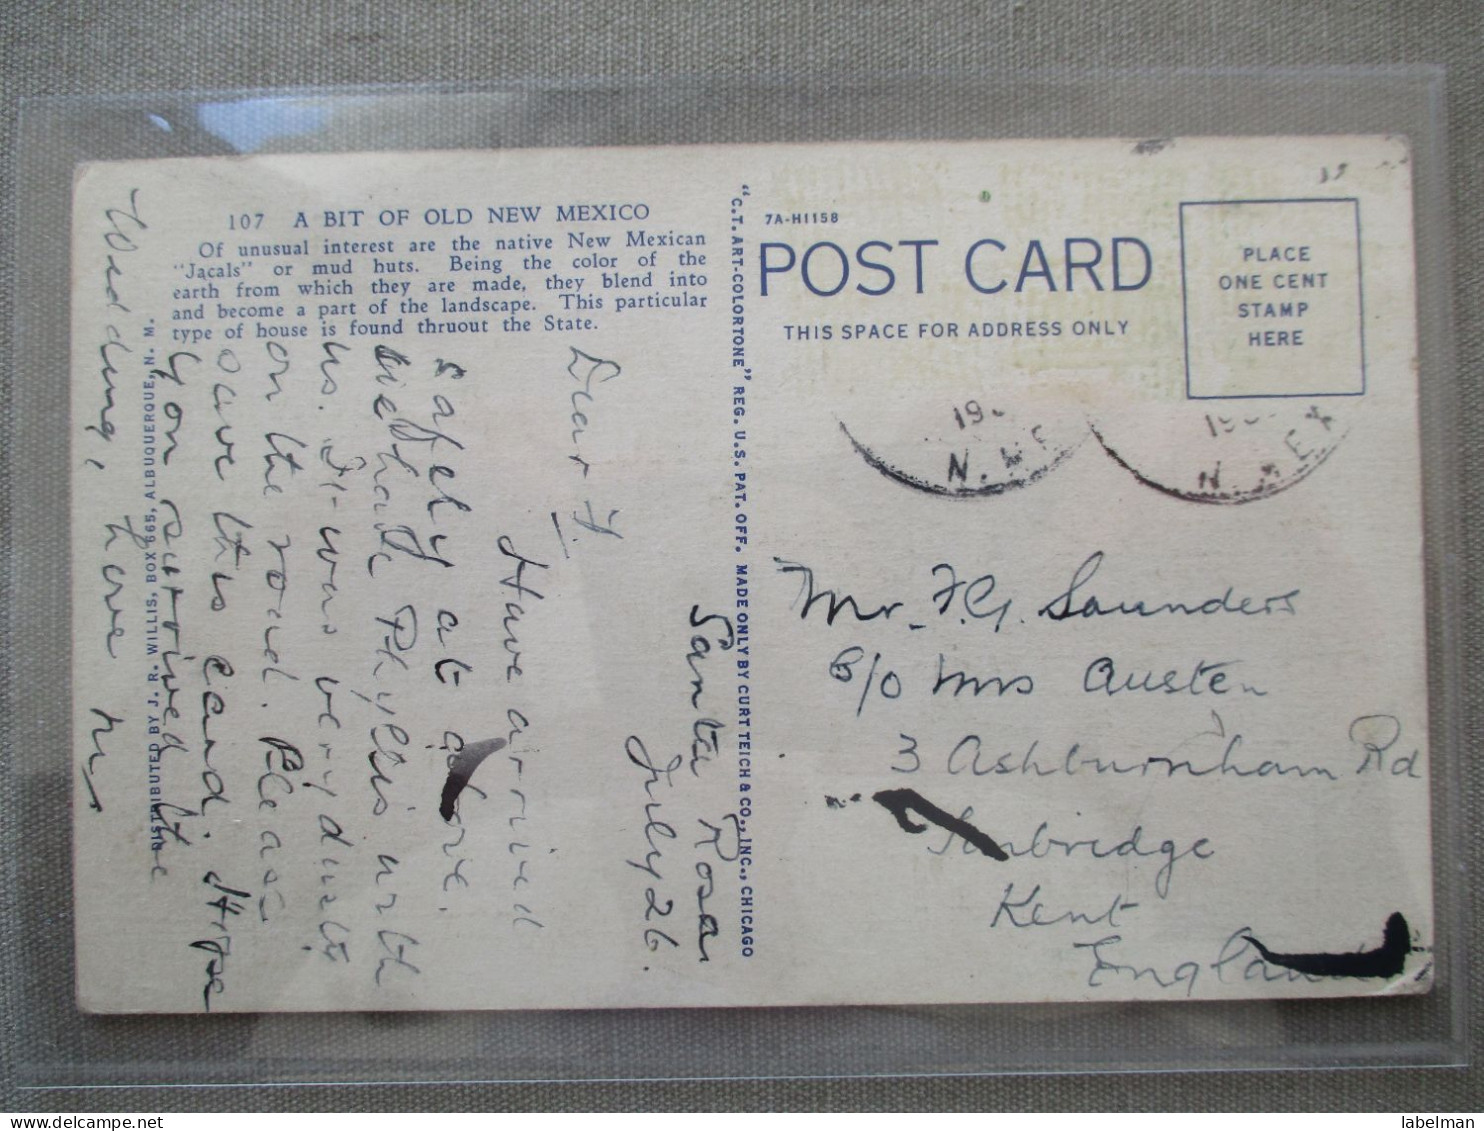 107 A BIT OF OLD NEW MEXICO
Of unusual interest are the native New Mexican
"Jacals" or mud huts. Being the color of the
earth from which they are made, they blend into
and become a part of the landscape. This particular
type of house is found thruout the State.
DISTRIBUTED BY J. R. WILLIS, BOX 665, ALBUQUERQUE, N. M.
"C.T. ART-COLORTONE" REG. U.S. PAT. OFF. MADE ONLY BY CURT TEICH & CO., INC., CHICAGO
7A-H1158
POST CARD
THIS SPACE FOR ADDRESS ONLY
PLACE
ONE CENT
STAMP
HERE
N. MEX
N. MEX
Santa Rosa
July 26.
Dear F.
Have arrived
safely at above.
Phyllis with
us. It was very dusty
on the road. Please
save this card. Hope
you survived the
Wedding, Love
Mr. F. G. Saunders
c/o Mrs Austen
3 Ashburnham Rd
Tonbridge
Kent
England
labelman
delcampe.net